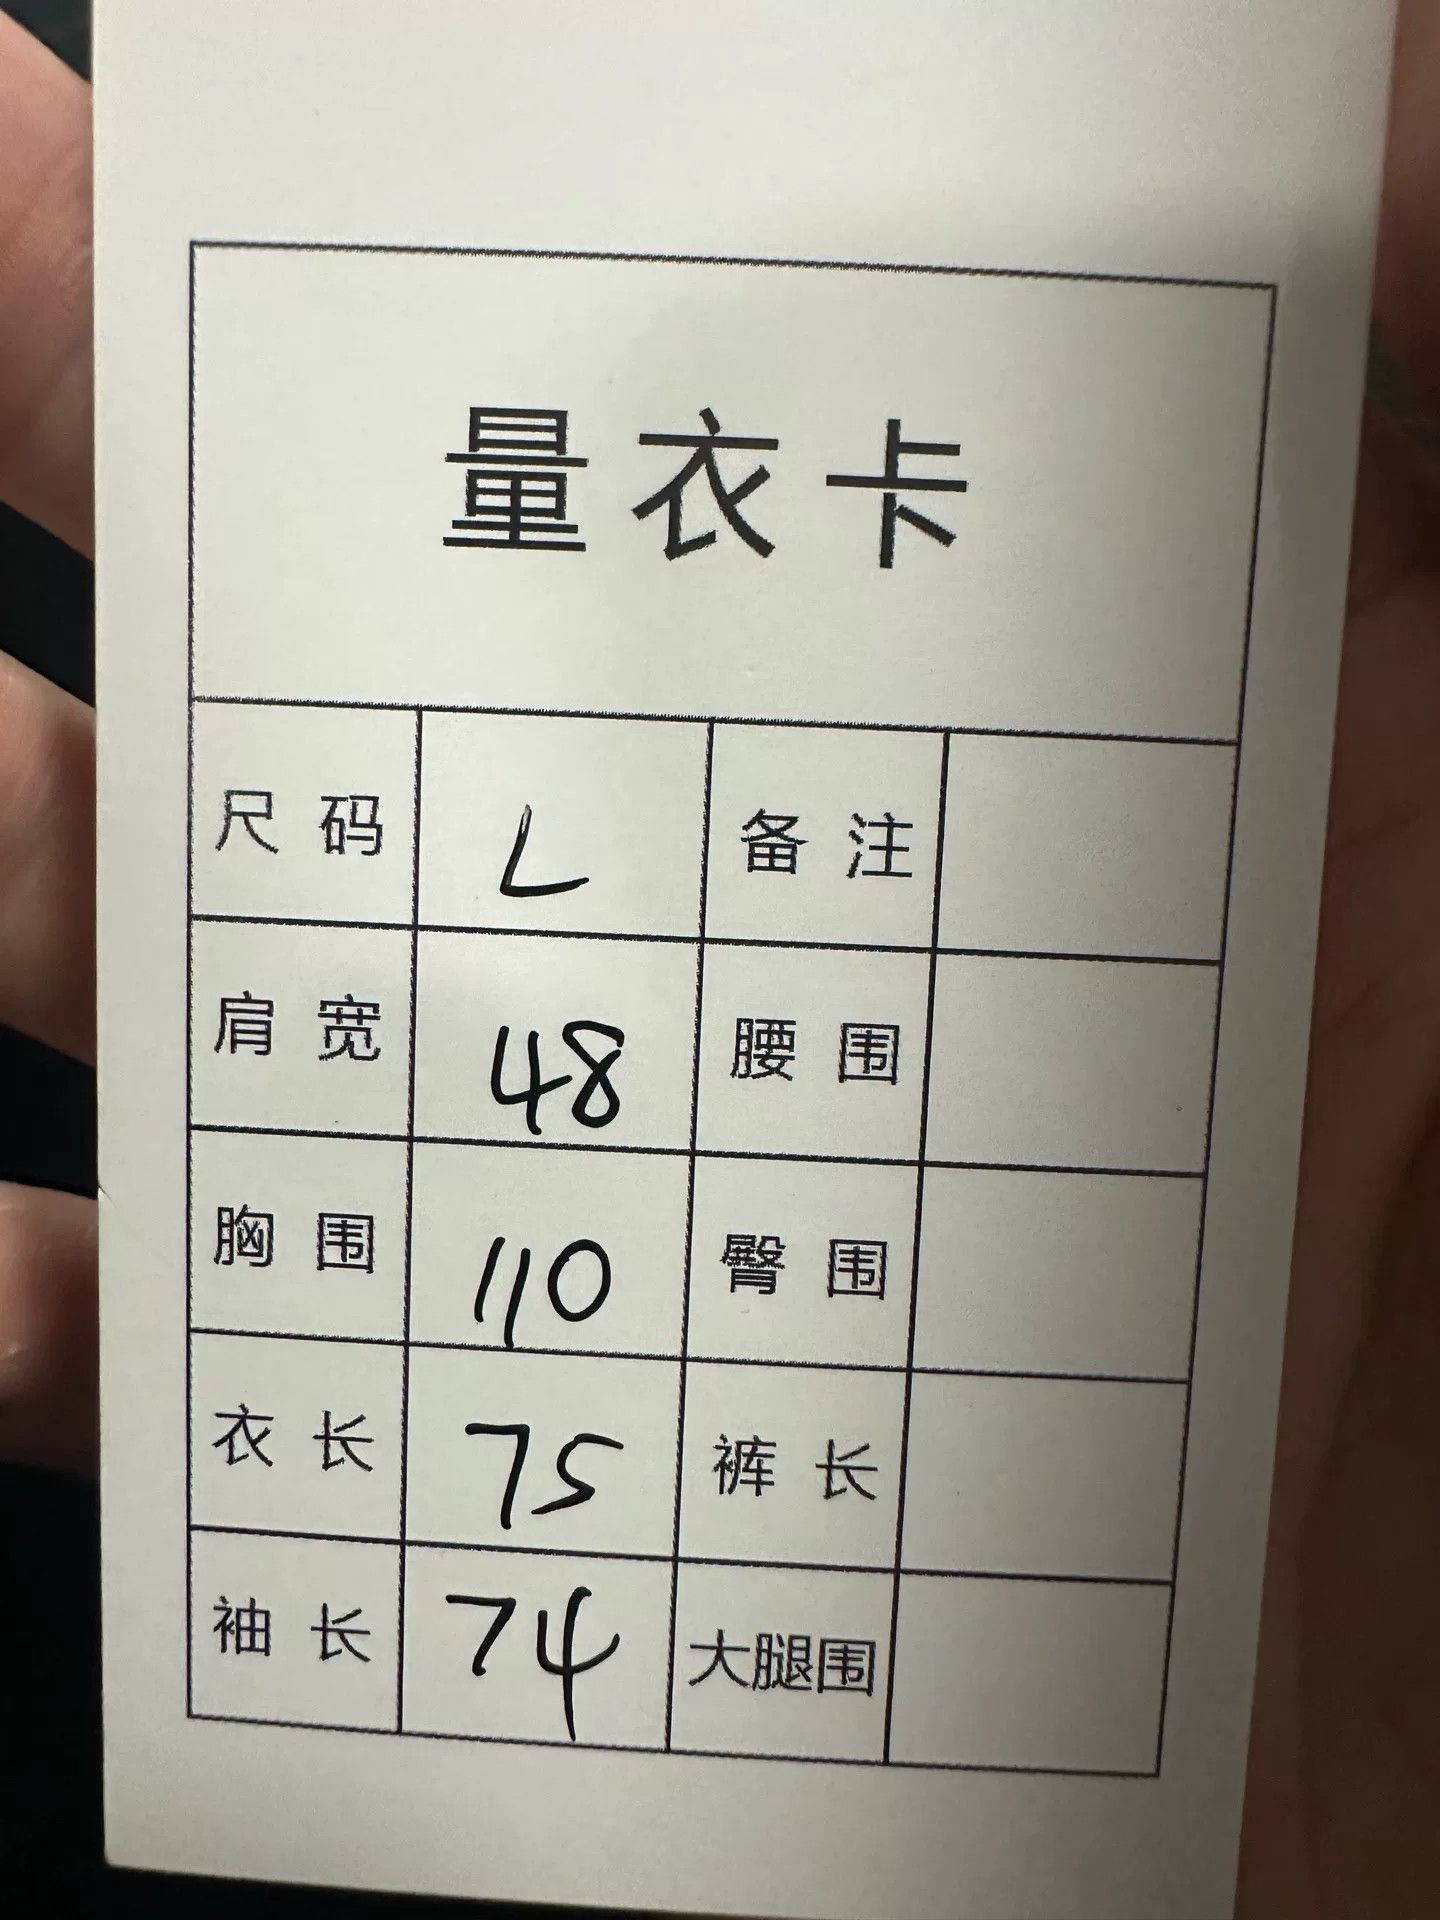 量衣卡
尺码 L 备注
肩宽 48 腰围
胸围 110 臀围
衣长 75 裤长
袖长 74 大腿围